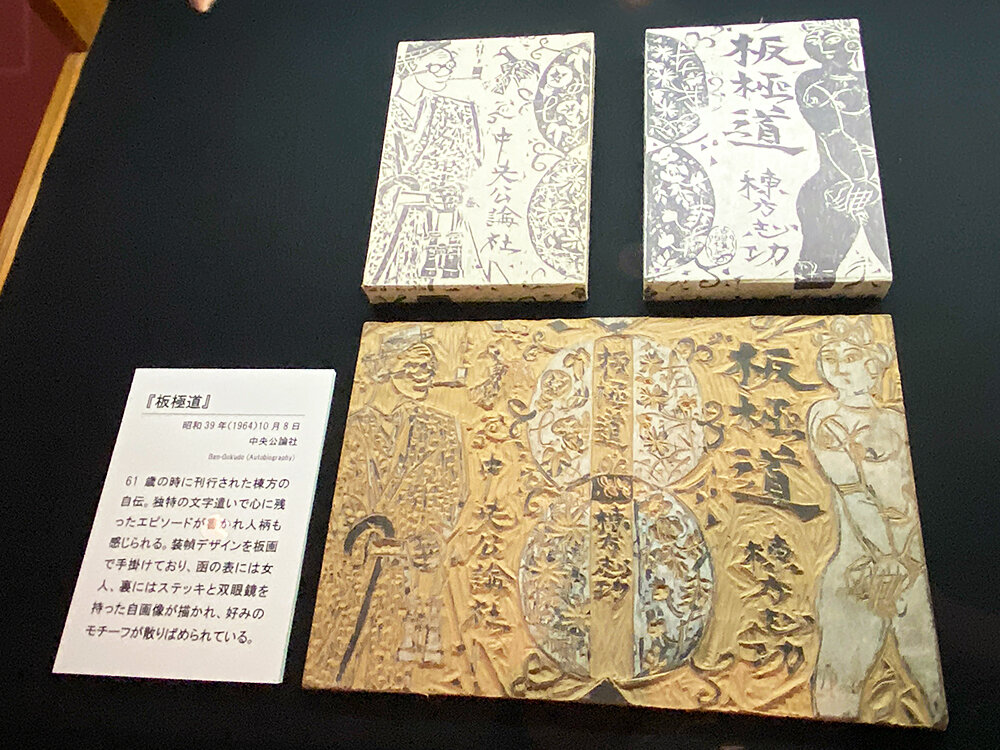 中央公論社
板極道
棟方志功
『板極道』
昭和39年(1964)10月8日
中央公論社
Ban-Gokudo (Autobiography)
61 歳の時に刊行された棟方の
自伝。独特の文字遣いで心に残
ったエピソードが書かれ人柄も
感じられる。装幀デザインを板画
で手掛けており、函の表には女
人、裏にはステッキと双眼鏡を
持った自画像が描かれ、好みの
モチーフが散りばめられている。
中央公論社
板極道
棟方志功
板極道
棟方志功